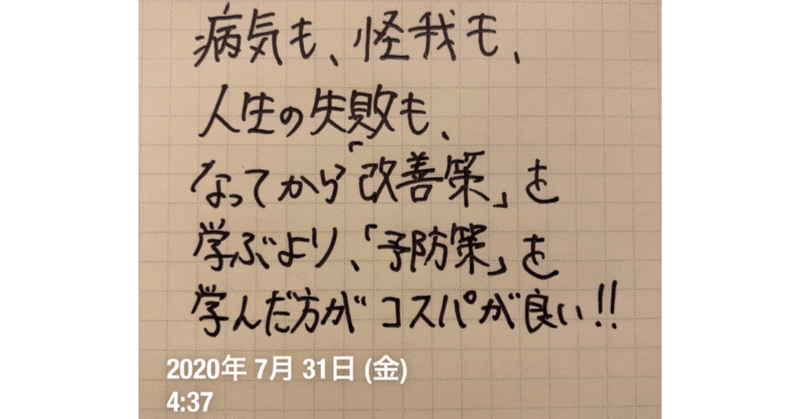 病気も、怪我も、
人生の失敗も、
なってから「改善策」を
学ぶより、「予防策」を
学んだ方がコスパが良い!!
2020年 7月 31日 (金)
4:37